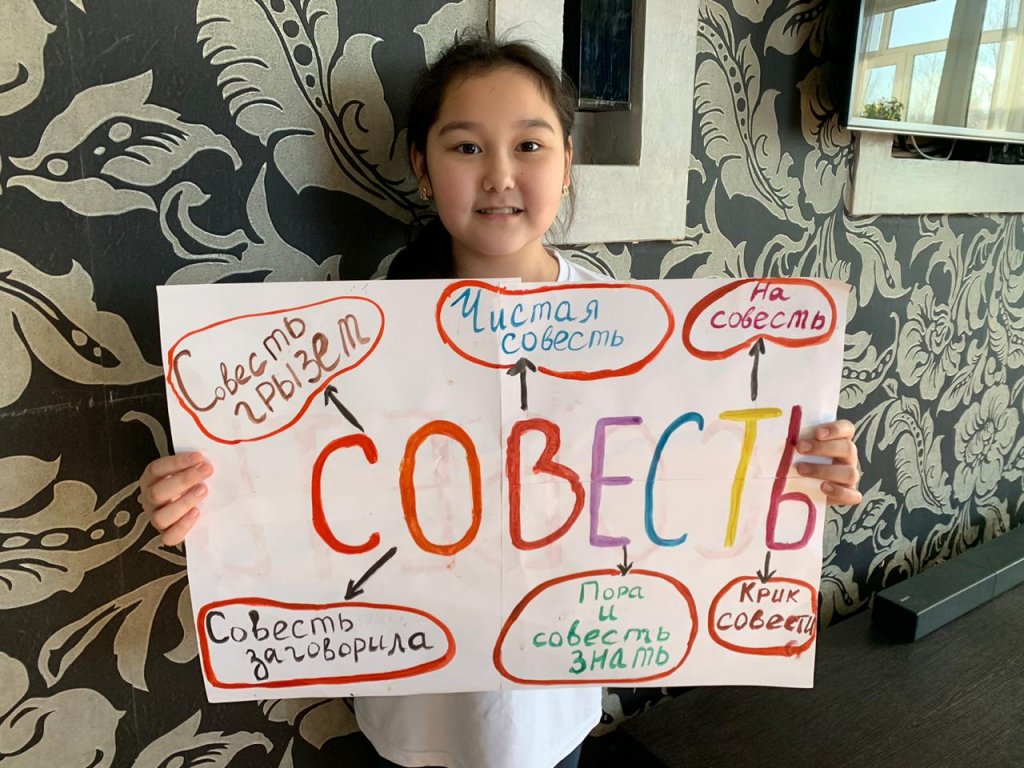 Совесть
грызет
Чистая
совесть
На
совесть
СОВЕСТЬ
Совесть
заговорила
Пора
и
совесть
знать
Крик
совести